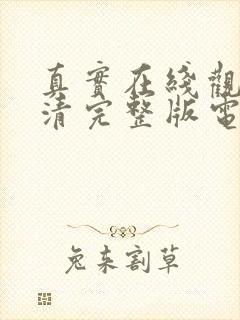 真實在綫觀
清完整版電
兔来割草